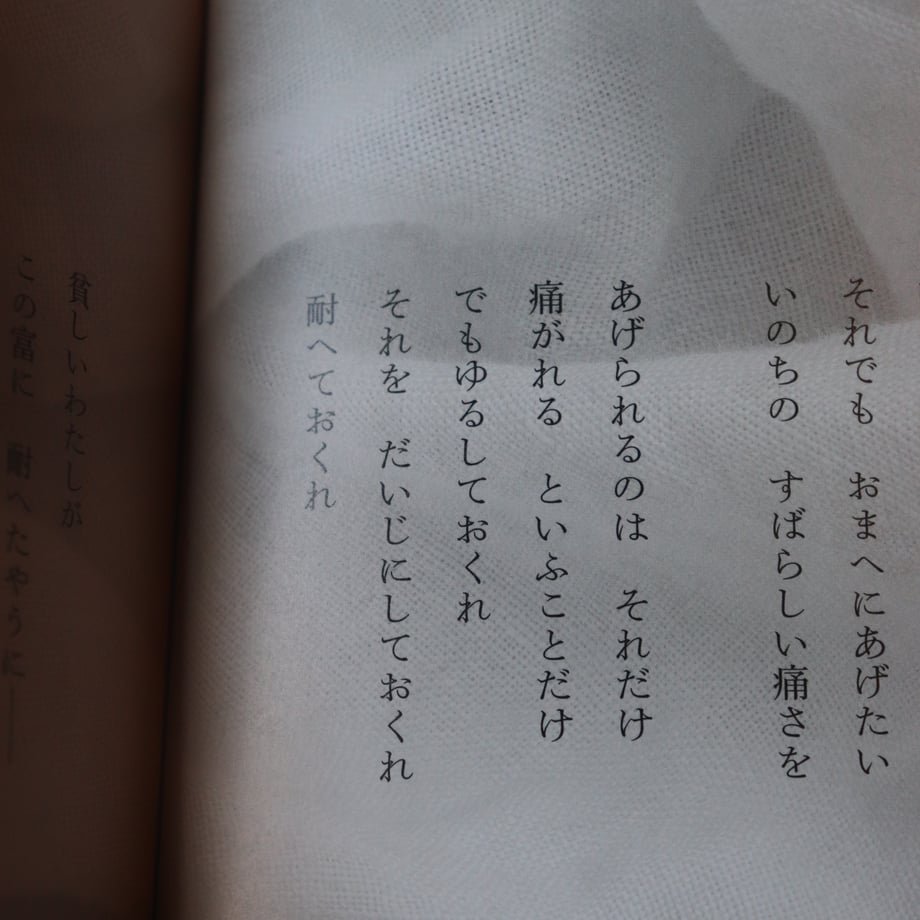 それでも　おまへにあげたい
いのちの　すばらしい痛さを
あげられるのは　それだけ
痛がれる　といふことだけ
でもゆるしておくれ
それを　だいじにしておくれ
耐へておくれ
貧しいわたしが
この富に　耐へたやうに――